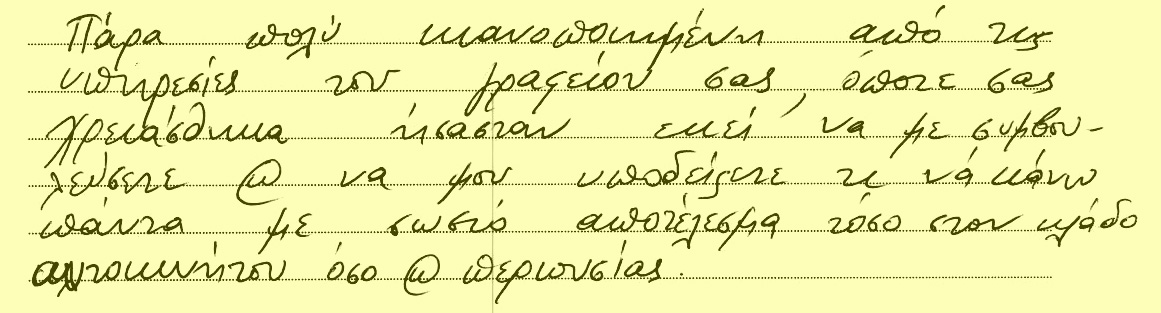 Πάρα πολύ ικανοποιημένη από τις
υπηρεσίες του γραφείου σας, όποτε σας
χρειάσθηκα ήσασταν εκεί να με συμβου-
λεύσετε @ να μου υποδείξετε τι νά κάνω
πάντα με σωστό αποτέλεσμα τόσο στον κλάδο
αυτοκινήτου όσο @ περιουσίας.